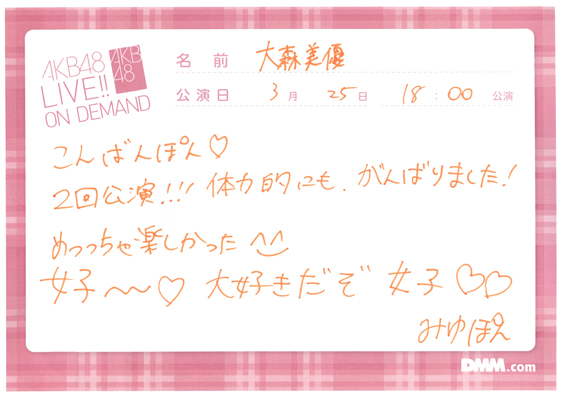 AKB48
LIVE!!
ON DEMAND
AKB
48
名前 大森美優
公演日 3月 25日 18:00 公演
こんばんぽん♡
2回公演!!! 体力的にも、がんばりました!
めっっちゃ楽しかった^^
女子〜〜♡ 大好きだぞ 女子♡♡
みゆぽん
DMM.com